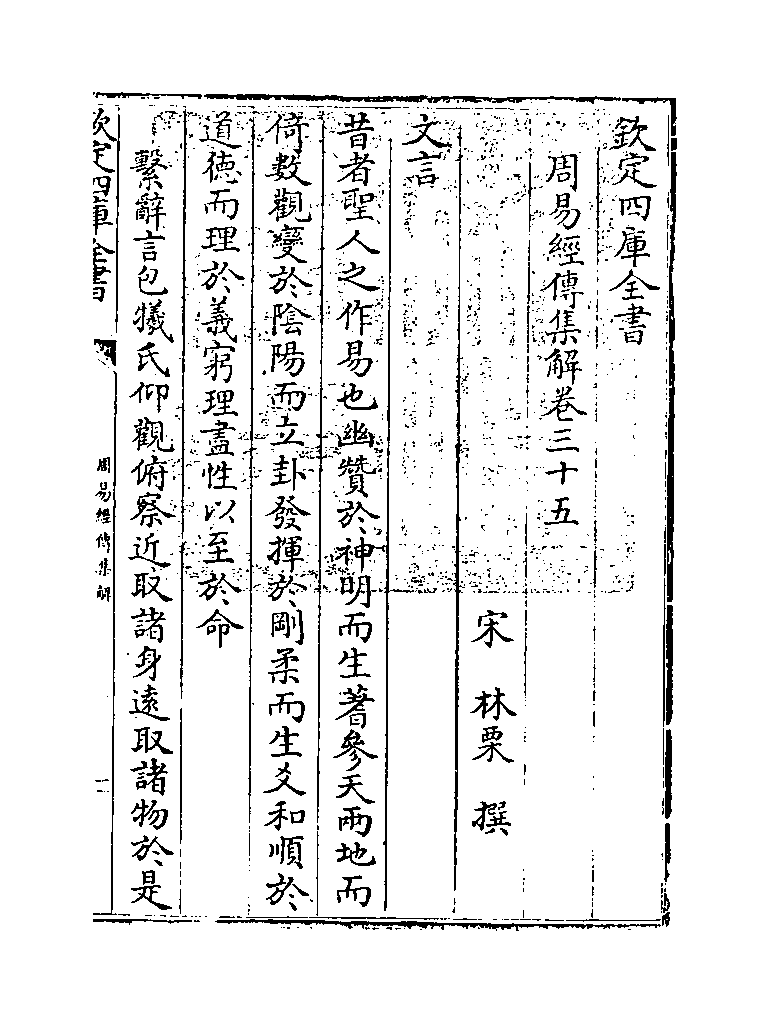 欽定四庫全書
周易經傳集解卷三十五
宋 林栗 撰
文言
昔者聖人之作易也幽贊於神明而生蓍參天兩地而
倚數觀變於陰陽而立卦發揮於剛柔而生爻和順於
道德而理於義窮理盡性以至於命
繫辭言包犧氏仰觀俯察近取諸身遠取諸物於是
欽定四庫全書
周易經傳集解
一